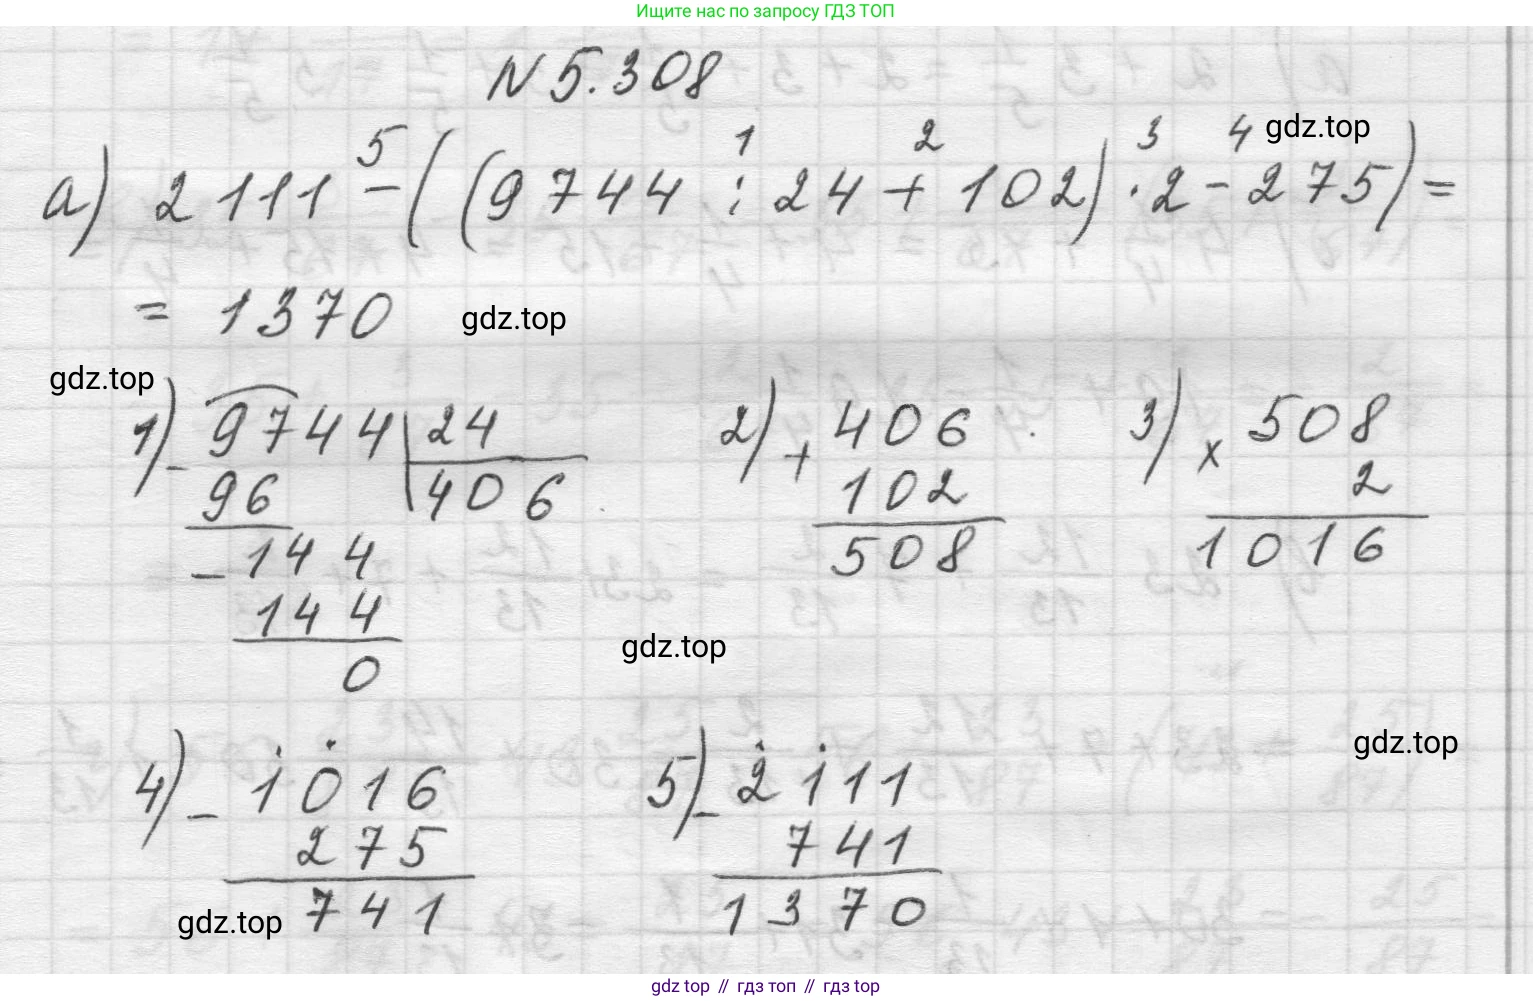 Ищите нас по запросу ГДЗ ТОП
N 5.308
5 1 2 3 4 gdz.top
а) 2111 - ((9744 : 24 + 102) · 2 - 275) =
= 1370 gdz.top
gdz.top
1) - 9744 | 24 2) + 406 3) × 508
96 406 102 2
- 144 508 1016
144
gdz.top
0
gdz.top
4) - 1016 5) - 2111
275 741
gdz.top 741 1370
gdz top // гдз топ // гдз top